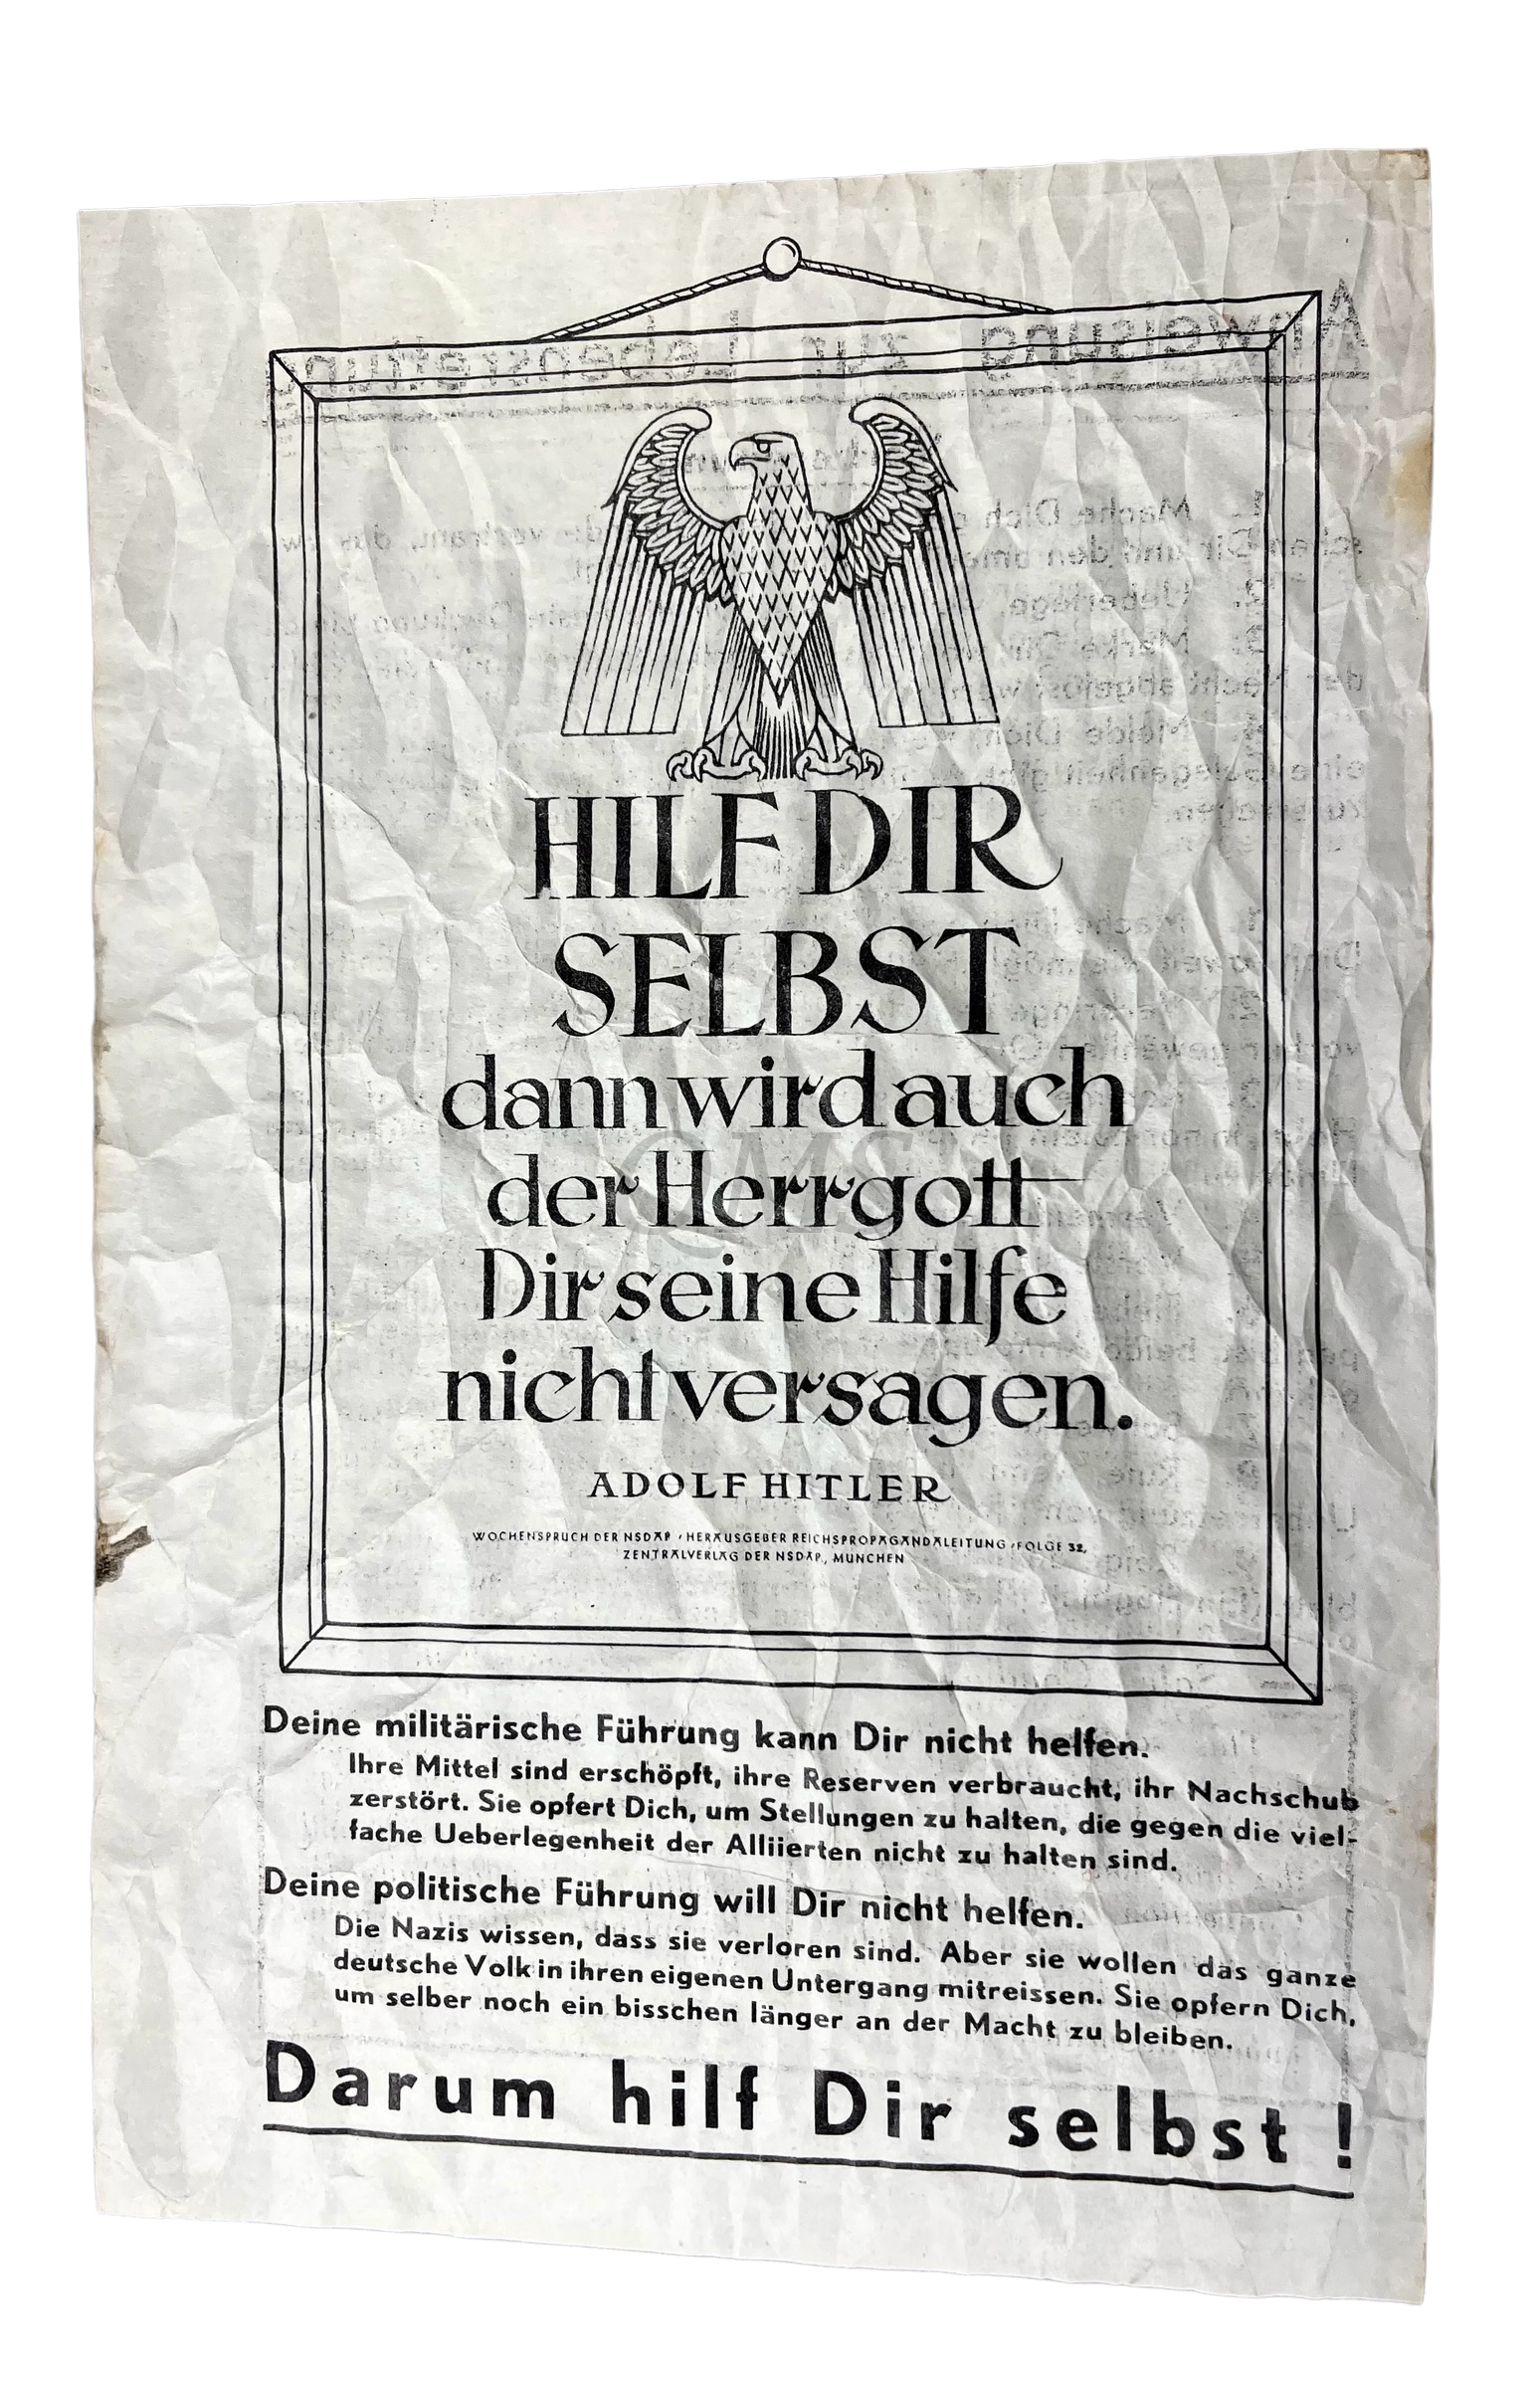 HILF DIR
SELBST
dann wird auch
der Herrgott
Dir seine Hilfe
nicht versagen.
ADOLF HITLER
WOCHENSPRUCH DER NSDAP / HERAUSGEBER REICHSPROPAGANDALEITUNG / FOLGE 32,
ZENTRALVERLAG DER NSDAP., MUNCHEN
Deine militärische Führung kann Dir nicht helfen.
Ihre Mittel sind erschöpft, ihre Reserven verbraucht, ihr Nachschub
zerstört. Sie opfert Dich, um Stellungen zu halten, die gegen die viel-
fache Ueberlegenheit der Alliierten nicht zu halten sind.
Deine politische Führung will Dir nicht helfen.
Die Nazis wissen, dass sie verloren sind. Aber sie wollen das ganze
deutsche Volk in ihren eigenen Untergang mitreissen. Sie opfern Dich,
um selber noch ein bisschen länger an der Macht zu bleiben.
Darum hilf Dir selbst !